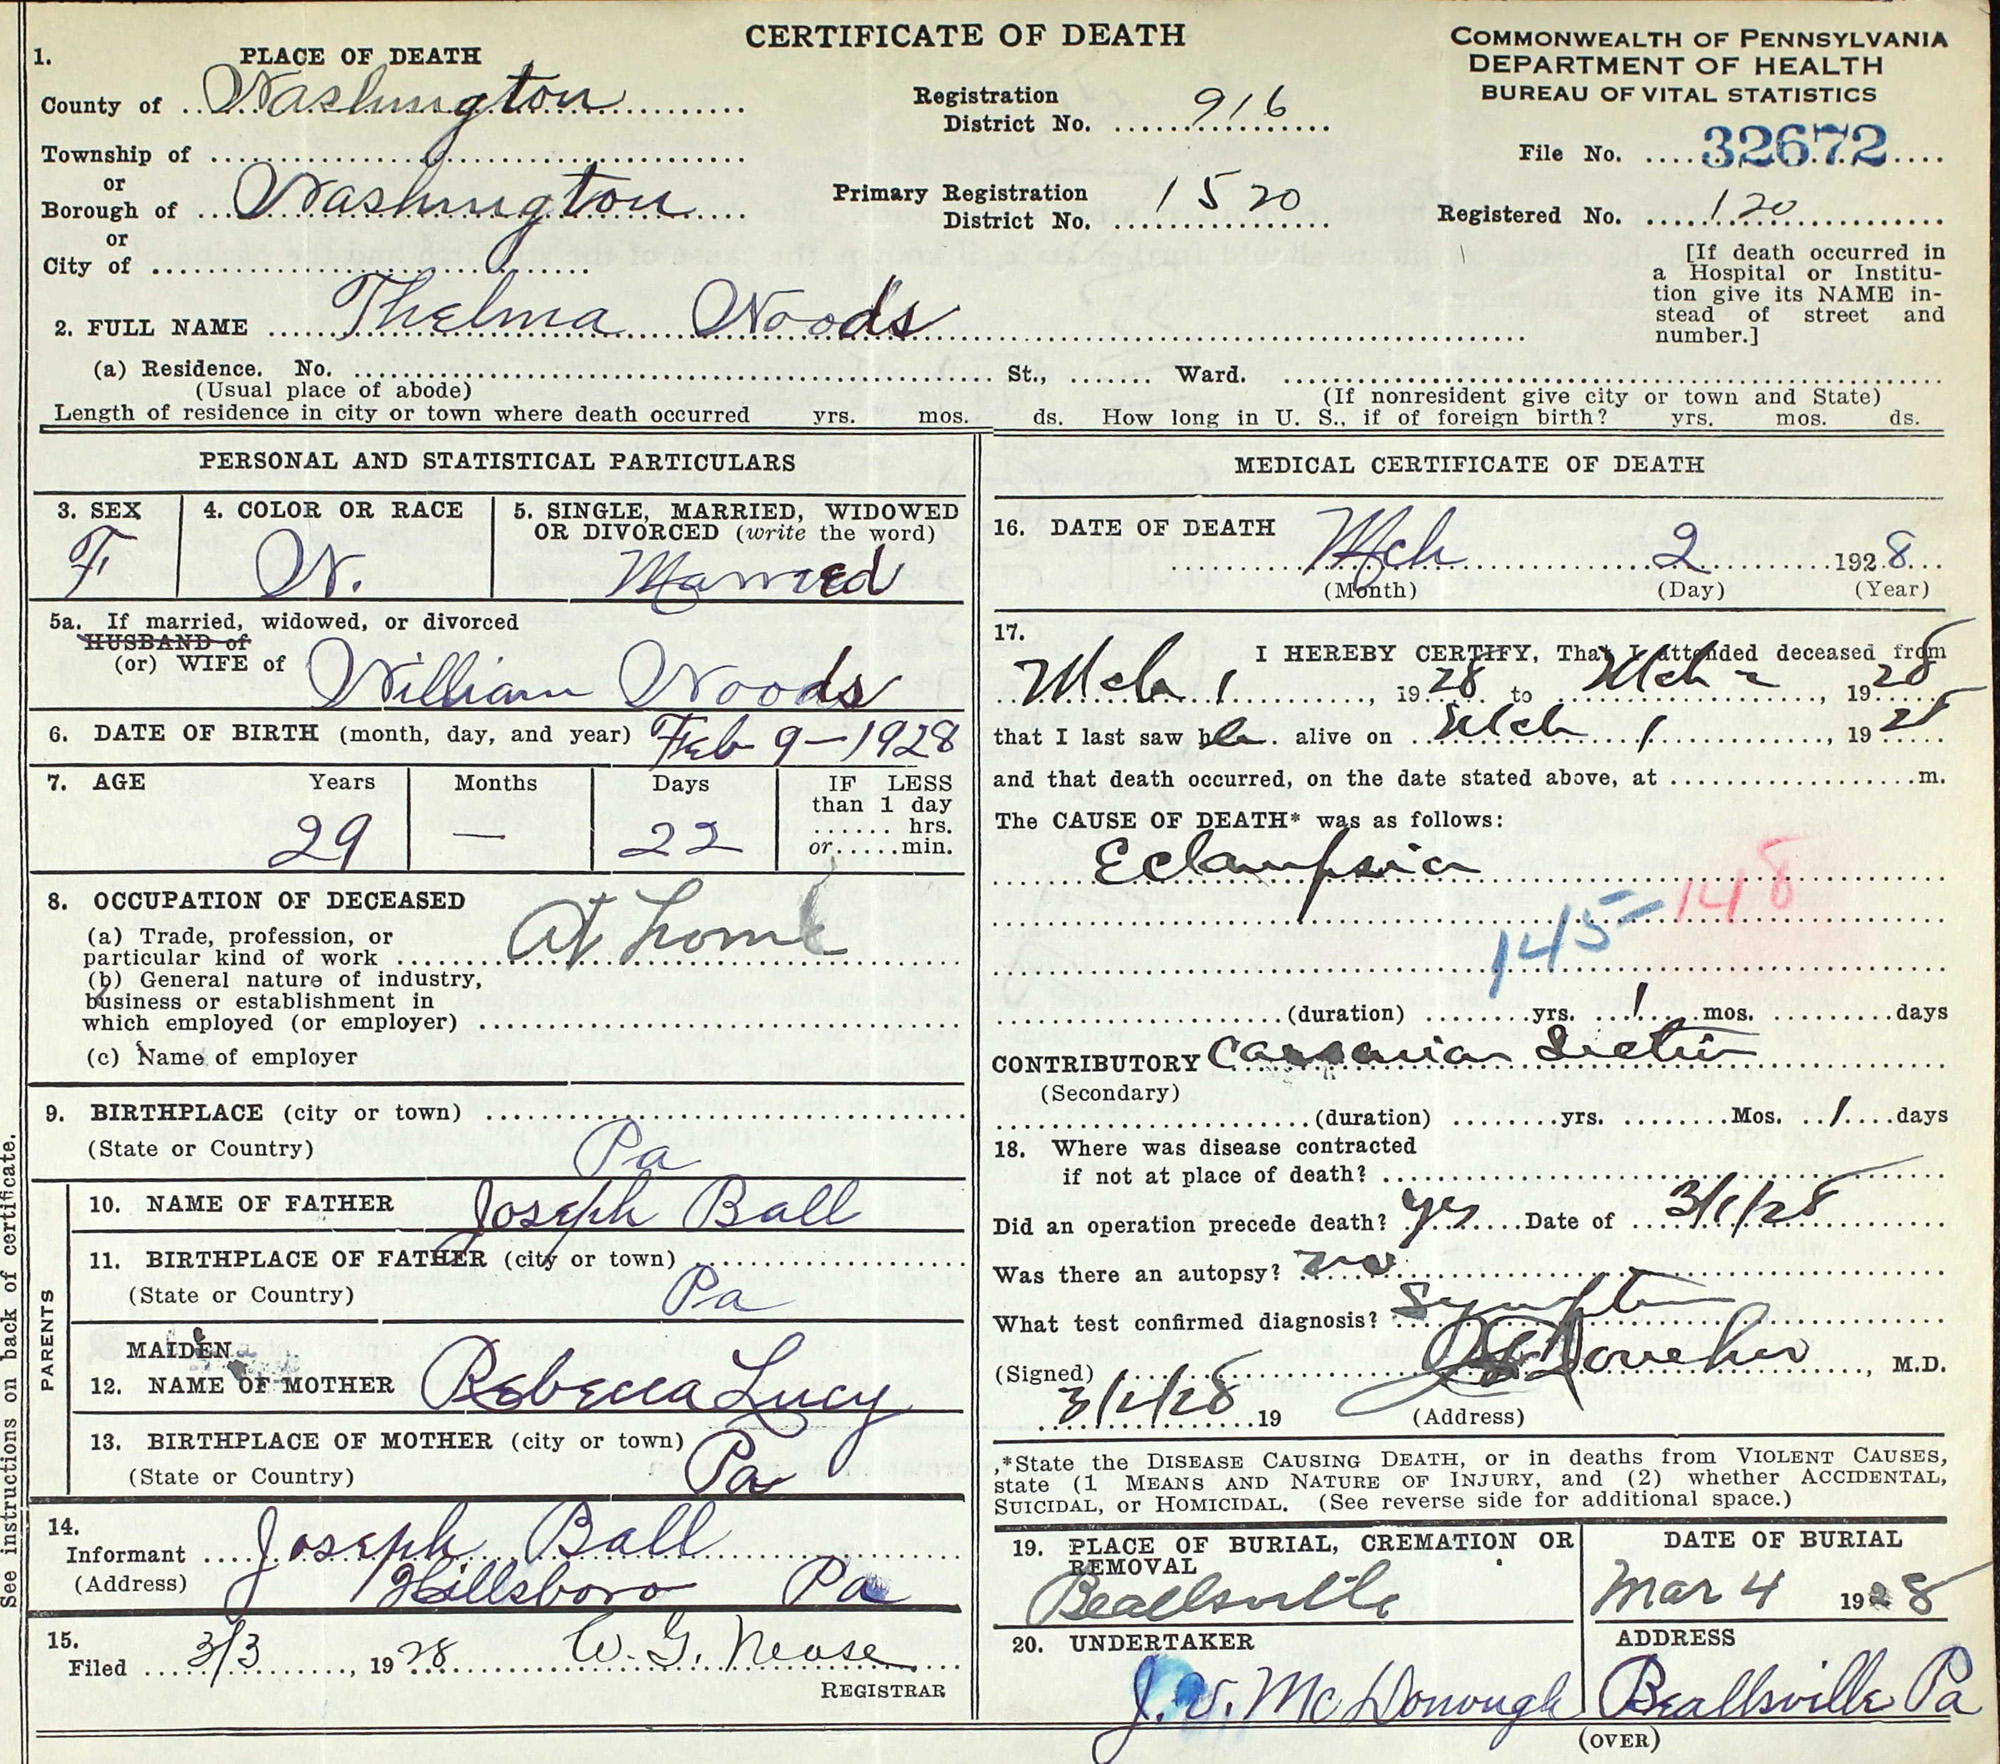 CERTIFICATE OF DEATH
COMMONWEALTH OF PENNSYLVANIA
DEPARTMENT OF HEALTH
BUREAU OF VITAL STATISTICS
1. PLACE OF DEATH
County of Washington
Registration District No. 916
File No. 32672
Township of
or
Borough of Washington
Primary Registration District No. 1520
Registered No. 120
or
City of
[If death occurred in
a Hospital or Institu-
tion give its NAME in-
stead of street and
number.]
2. FULL NAME Thelma Woods
(a) Residence. No. St., Ward.
(Usual place of abode) (If nonresident give city or town and State)
Length of residence in city or town where death occurred yrs. mos. ds. How long in U. S., if of foreign birth? yrs. mos. ds.
PERSONAL AND STATISTICAL PARTICULARS
3. SEX
F
4. COLOR OR RACE
W.
5. SINGLE, MARRIED, WIDOWED
OR DIVORCED (write the word)
Married
5a. If married, widowed, or divorced
HUSBAND of
(or) WIFE of William Woods
6. DATE OF BIRTH (month, day, and year) Feb 9-1928
7. AGE Years Months Days IF LESS
than 1 day
hrs.
or min.
29 — 22
8. OCCUPATION OF DECEASED
(a) Trade, profession, or
particular kind of work At home
(b) General nature of industry,
business or establishment in
which employed (or employer)
(c) Name of employer
9. BIRTHPLACE (city or town)
(State or Country) Pa
PARENTS
10. NAME OF FATHER Joseph Ball
11. BIRTHPLACE OF FATHER (city or town)
(State or Country) Pa
MAIDEN
12. NAME OF MOTHER Rebecca Lucy
13. BIRTHPLACE OF MOTHER (city or town)
(State or Country) Pa
14.
Informant Joseph Ball
(Address) Hillsboro Pa
15.
Filed 3/3, 1928 W. G. Nease
REGISTRAR
See instructions on back of certificate.
MEDICAL CERTIFICATE OF DEATH
16. DATE OF DEATH
Mch 2 1928
(Month) (Day) (Year)
17. I HEREBY CERTIFY, That I attended deceased from
Mch 1, 1928 to Mch 2, 1928
that I last saw her alive on Mch 1, 1928
and that death occurred, on the date stated above, at m.
The CAUSE OF DEATH* was as follows:
Eclampsia
145 148
(duration) yrs. 1 mos. days
CONTRIBUTORY Caesarian Section
(Secondary)
(duration) yrs. Mos. 1 days
18. Where was disease contracted
if not at place of death?
Did an operation precede death? yes Date of 3/1/28
Was there an autopsy? no
What test confirmed diagnosis?
(Signed) , M.D.
3/2/28 19 (Address)
*State the DISEASE CAUSING DEATH, or in deaths from VIOLENT CAUSES,
state (1 MEANS AND NATURE OF INJURY, and (2) whether ACCIDENTAL,
SUICIDAL, or HOMICIDAL. (See reverse side for additional space.)
19. PLACE OF BURIAL, CREMATION OR
REMOVAL
Beallsville
DATE OF BURIAL
Mar 4 1928
20. UNDERTAKER
J. V. McDonough
ADDRESS
Beallsville Pa
(OVER)